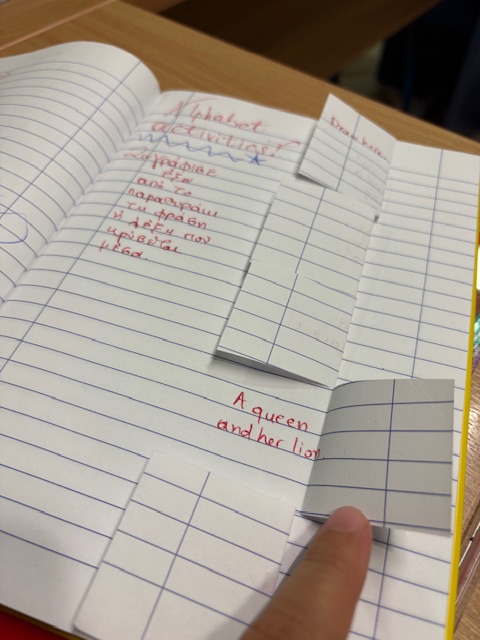 Alphabet
activities!
Ζωγράφισε
έξω
από το
παραθυράκι
τη φράση
ή λέξη που
κρύβεται
μέσα.
Draw here.
A queen
and her lion